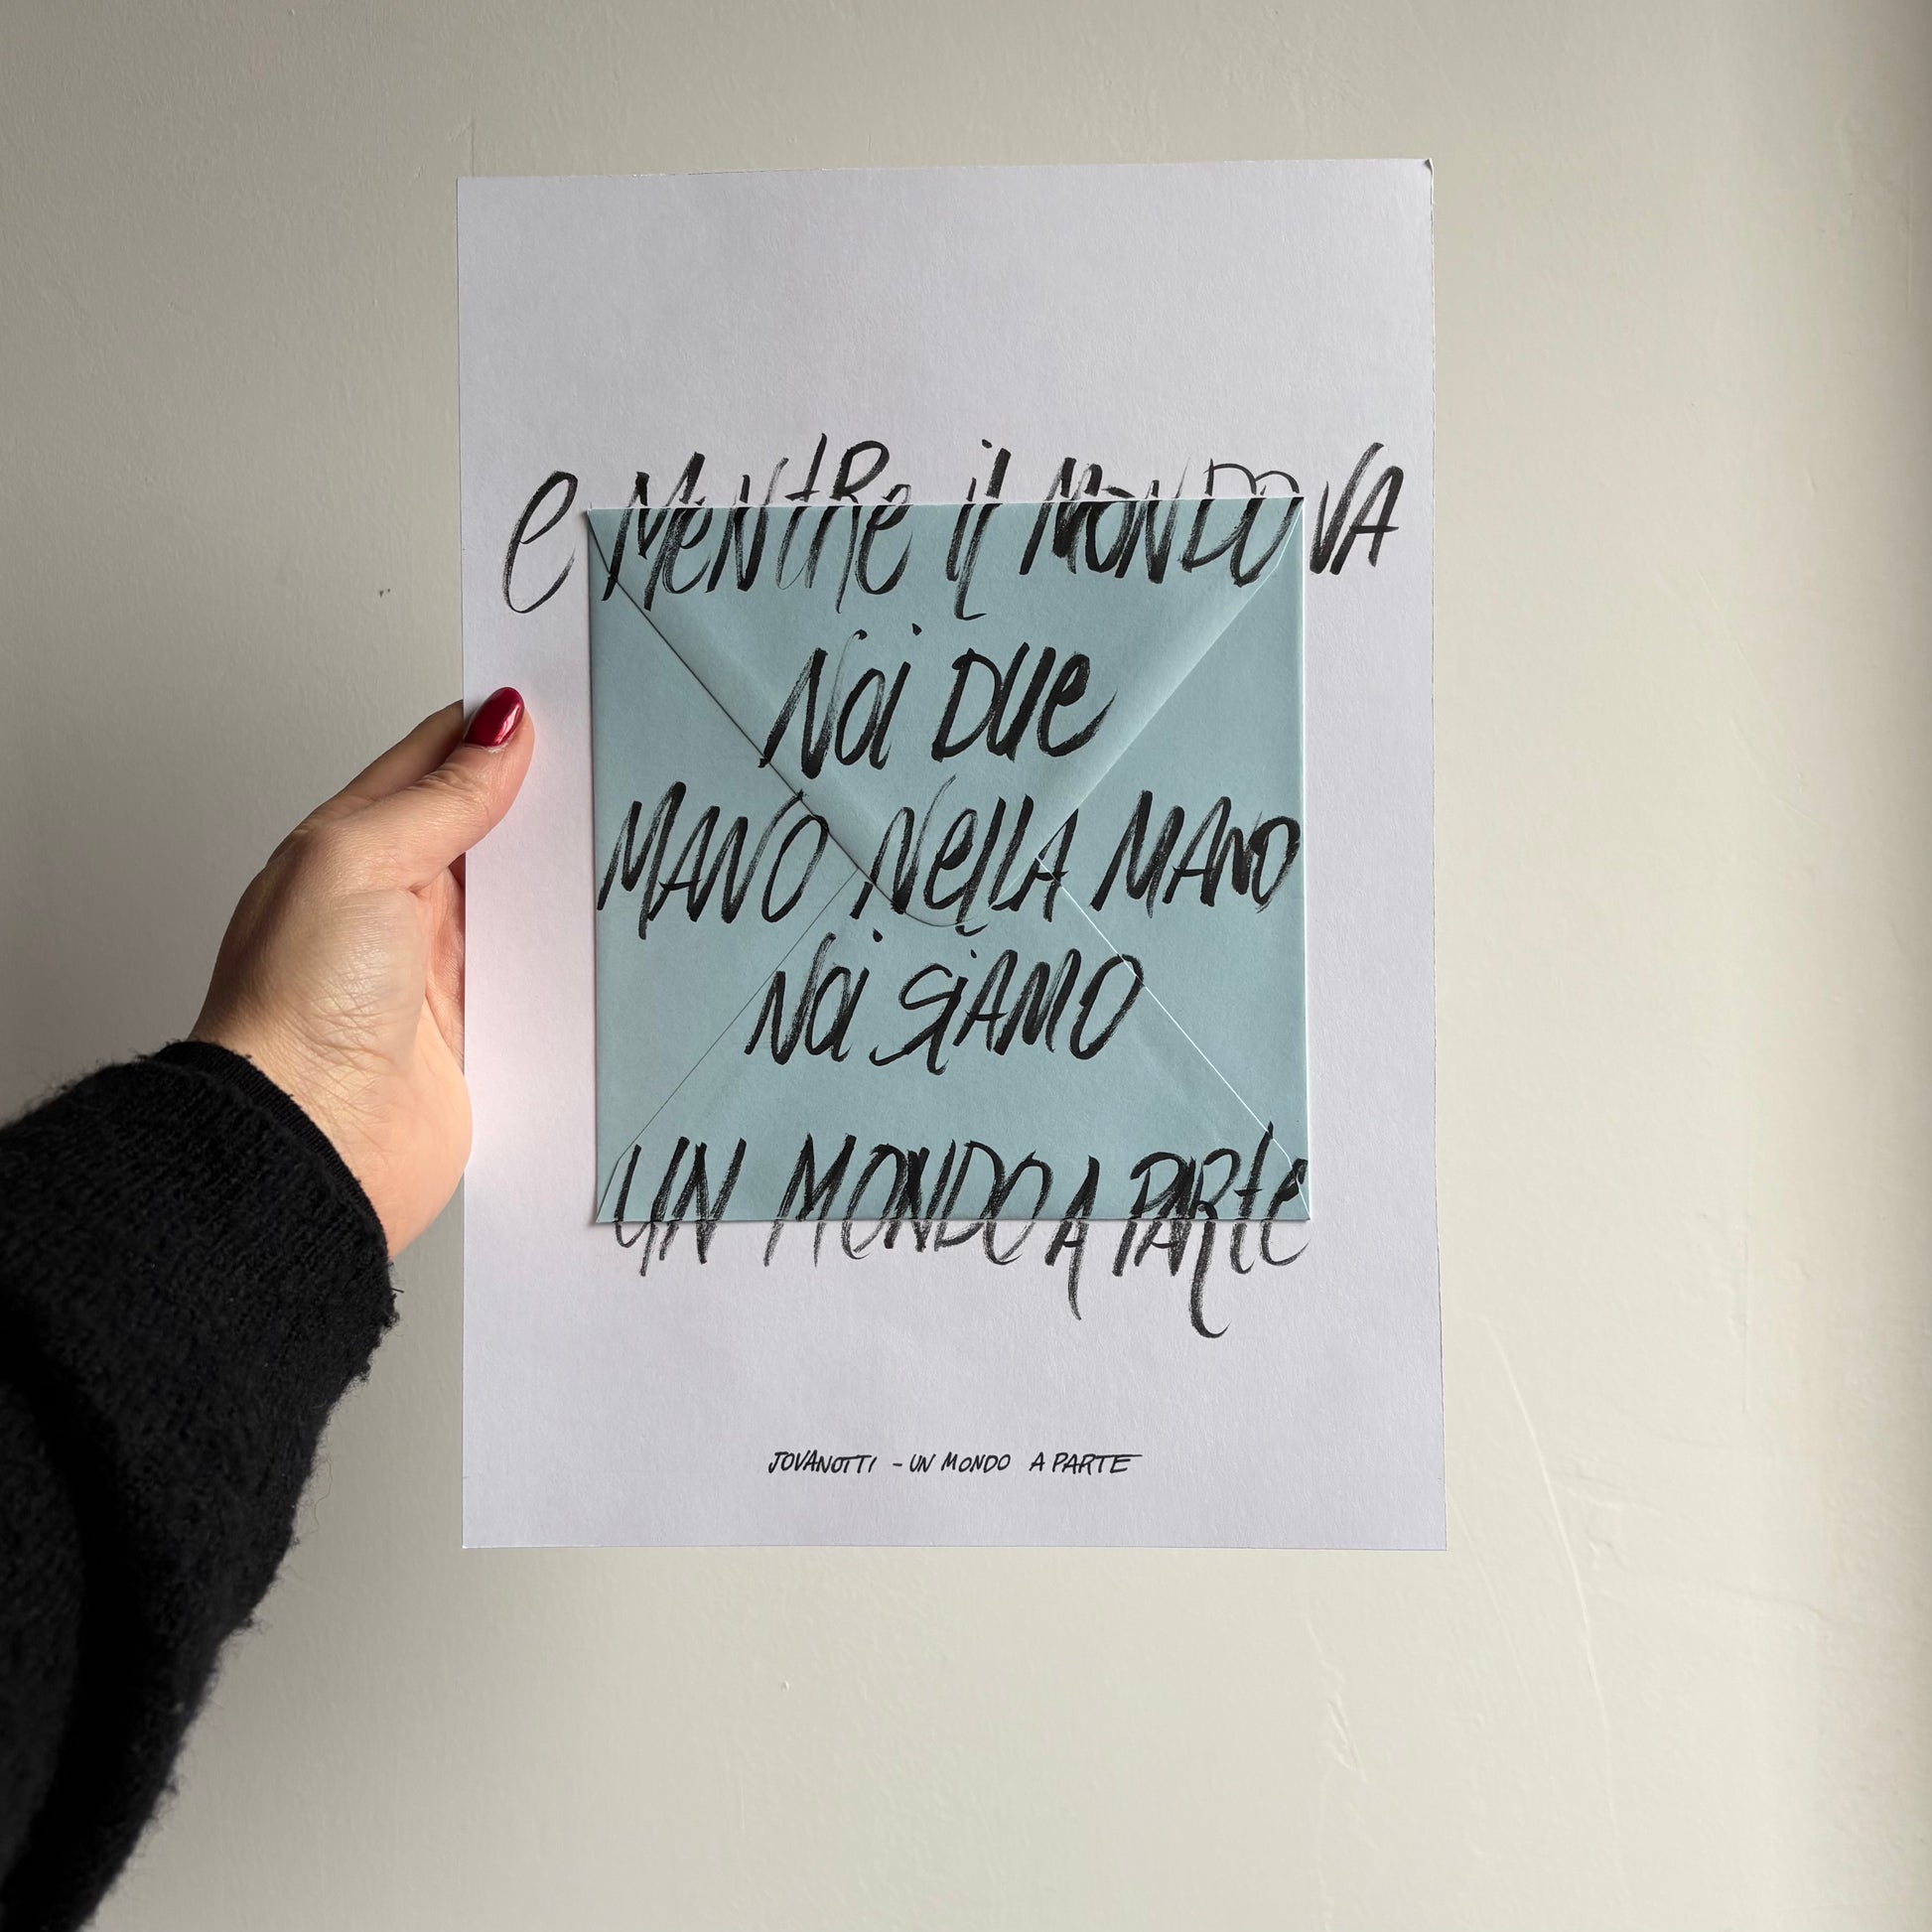 e MeNtRe il MONDO VA
Noi DUe
MANO NellA MANO
Noi SiAMO
UN MONDO A PARte
JOVANOTTI - UN MONDO A PARTE